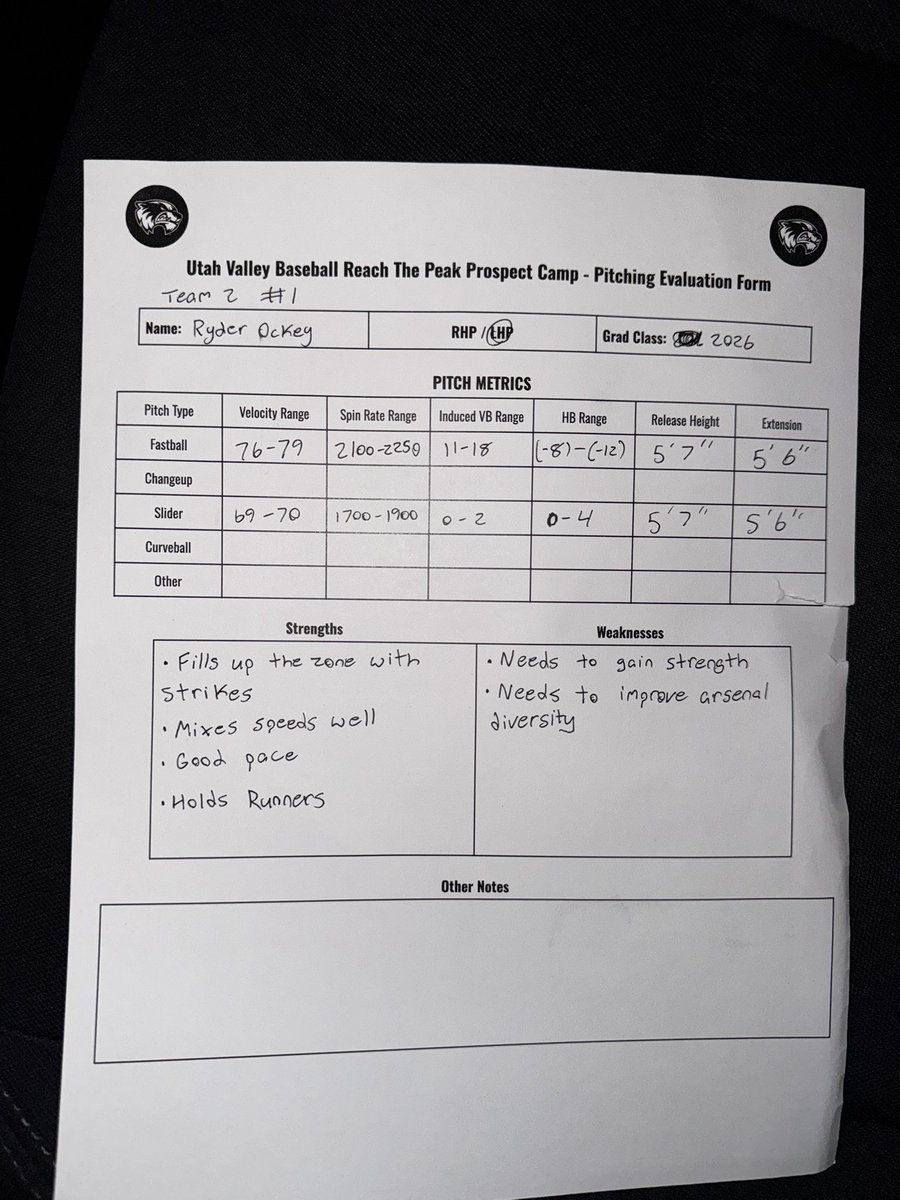 Utah Valley Baseball Reach The Peak Prospect Camp - Pitching Evaluation Form
Team 2 #1
Name: Ryder Ockey RHP / LHP Grad Class: 2026
PITCH METRICS
Pitch Type Velocity Range Spin Rate Range Induced VB Range HB Range Release Height Extension
Fastball 76-79 2100-2250 11-18 (-8)-(-12) 5'7" 5'6"
Changeup
Slider 69-70 1700-1900 0-2 0-4 5'7" 5'6"
Curveball
Other
Strengths Weaknesses
• Fills up the zone with
strikes
• Mixes speeds well
• Good pace
• Holds Runners
• Needs to gain strength
• Needs to improve arsenal
diversity
Other Notes